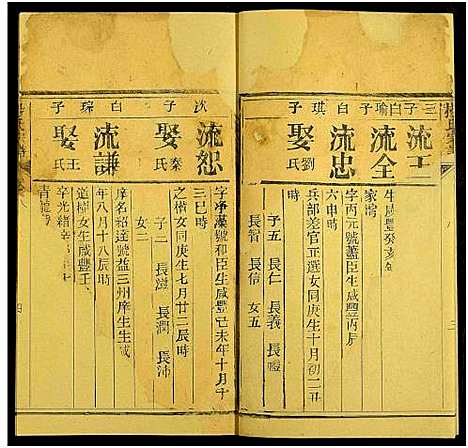 三子
流工
生咸豐癸亥
家灣
白瑜子
流全
字丙元號藎臣生咸豐丙辰
六申時
白琪子
流忠
娶劉氏
兵部差官正選女同庚生十月初二丑
時
子五 長仁 長義 長禮
長智 長信 女五
次子
流恕
娶秦氏
字淨蓮號和臣生咸豐己未年十月
三巳時
之模女同庚生七月廿二辰時
子二 長澍 長潤 長沛
女二
白瑞子
流謙
娶王氏
庠名紹逵號益三州庠生生咸
年八月十八辰時
道樟女生咸豐壬
字光緒
青龍